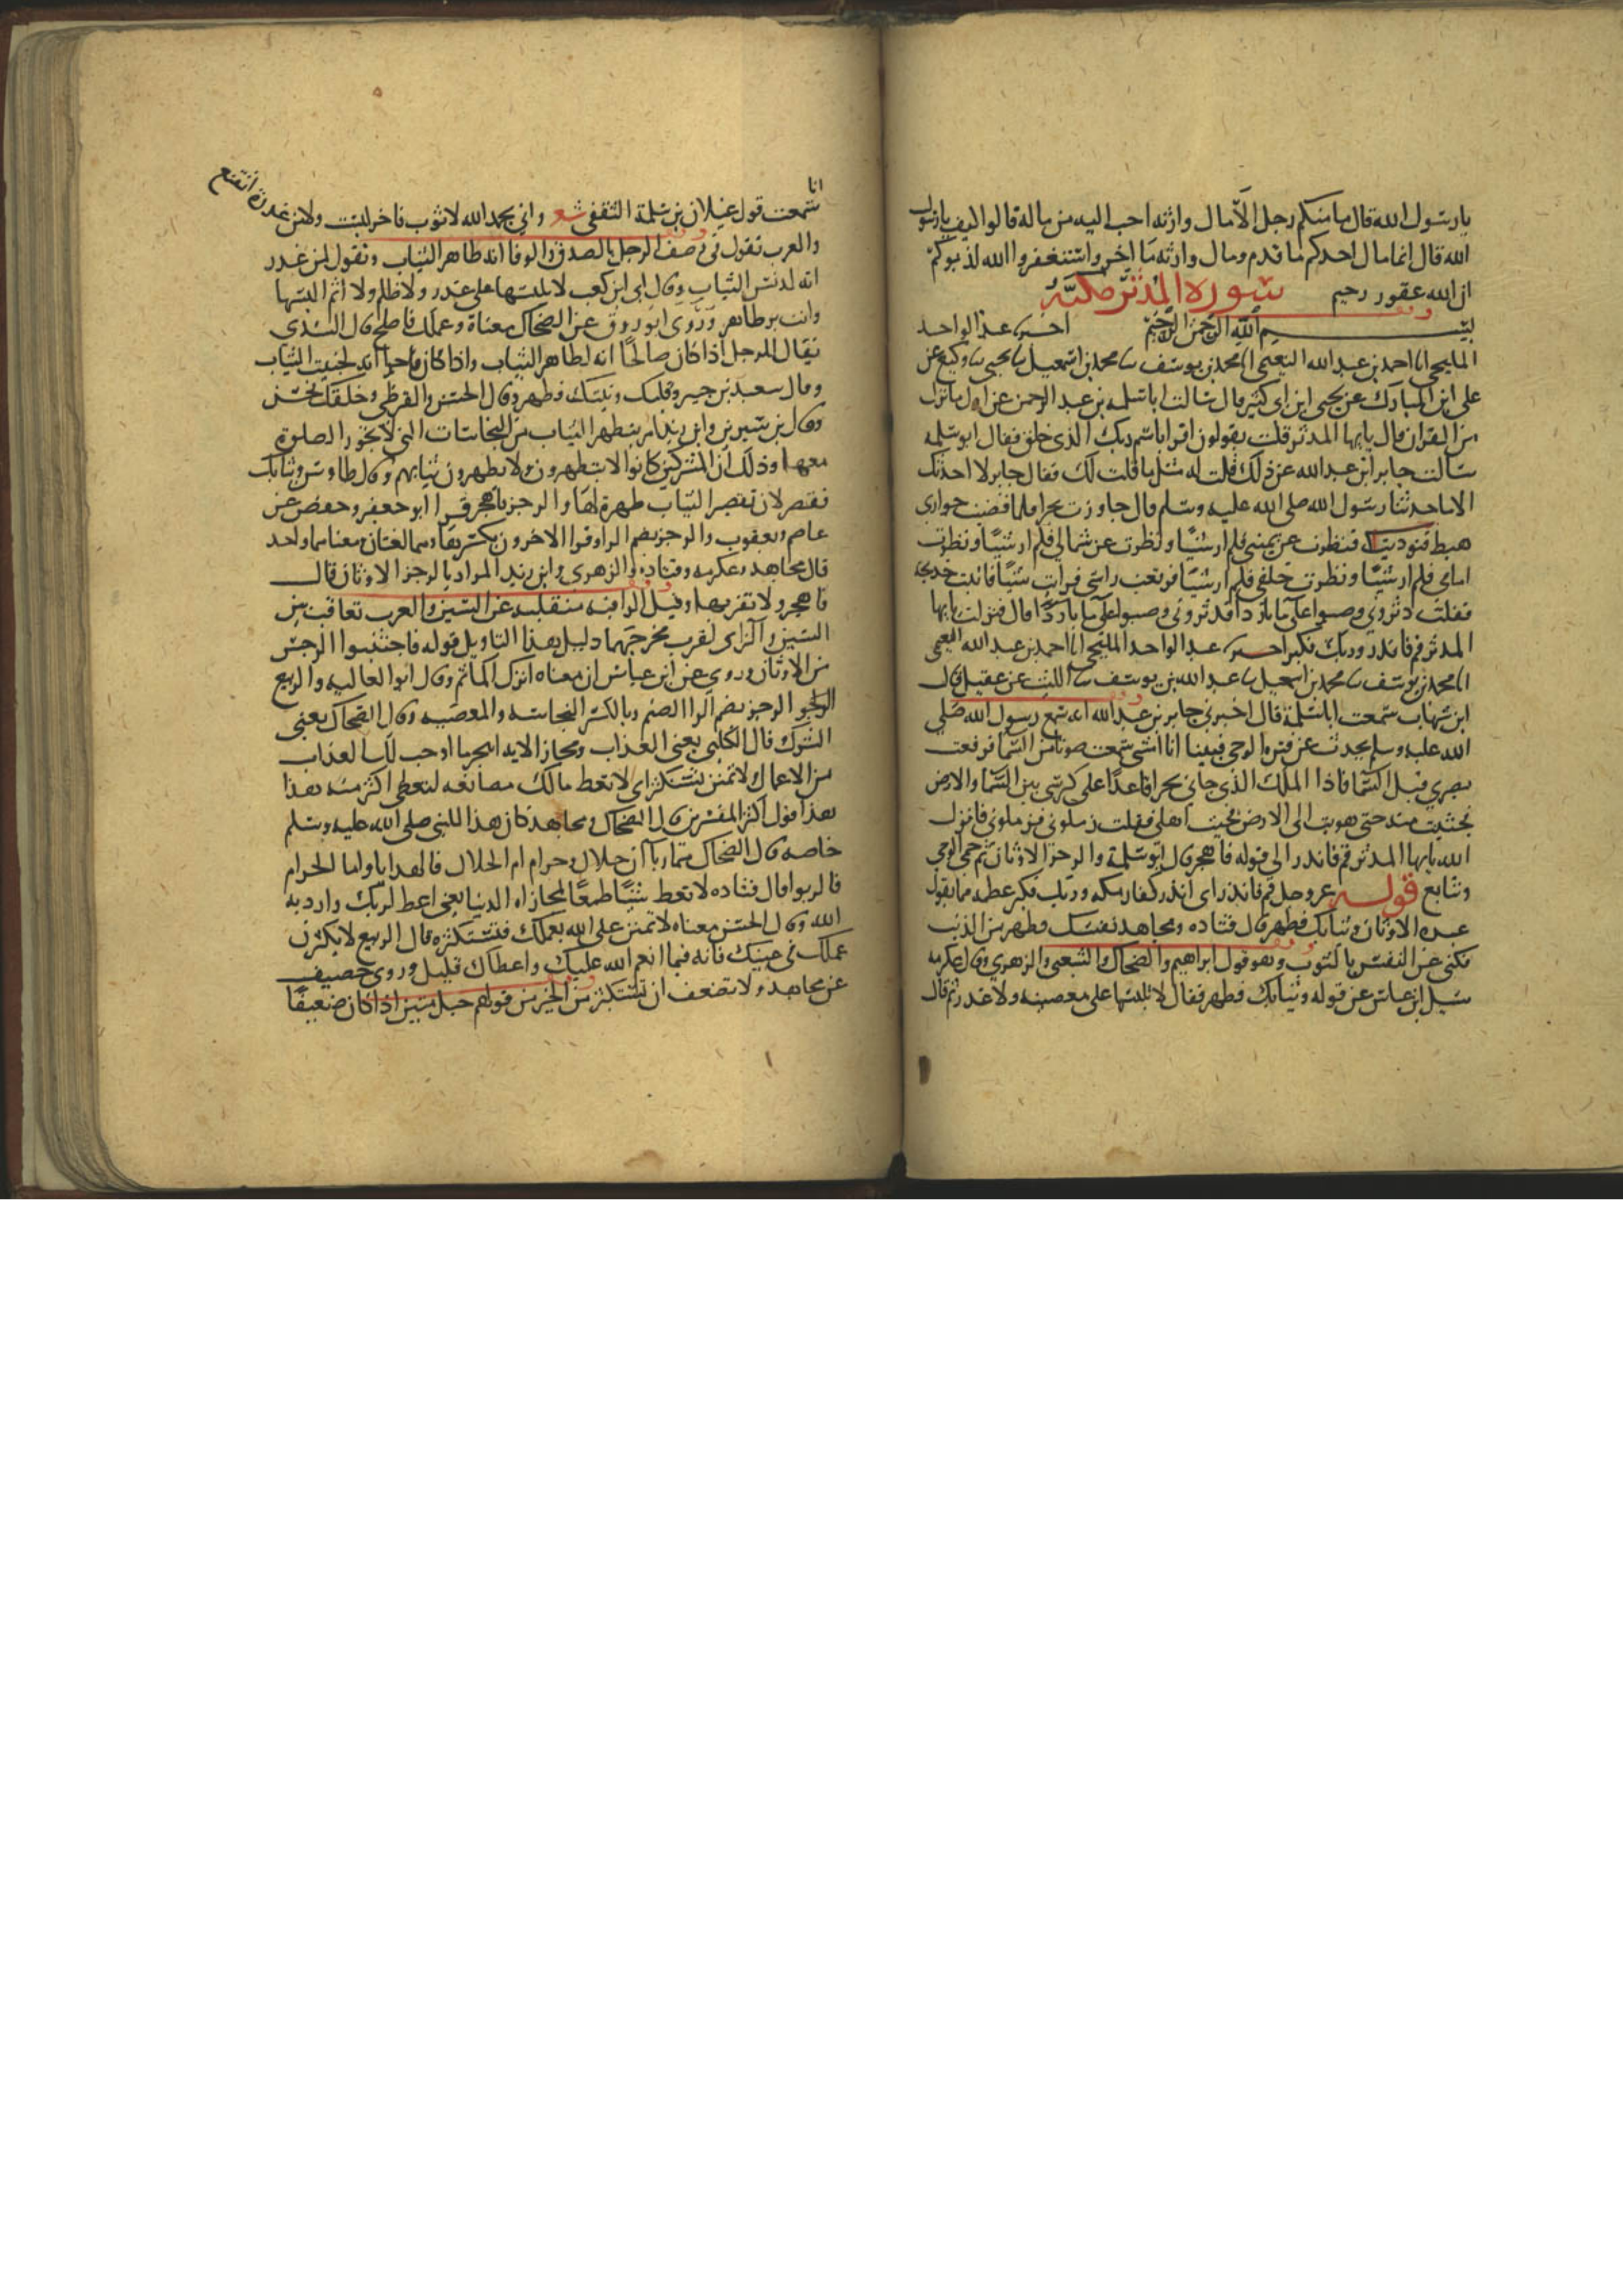 يا رسول الله قال ما منكم رجل الا مال وارثه احب اليه من ماله قالوا كيف يا رسول
الله قال انما مال احدكم ما قدم ومال وارثه ما اخر واستغفروا الله لذنوبكم
ان الله غفور رحيم سورة المدثر مكية
بسم الله الرحمن الرحيم اخبرنا عبد الواحد
المليحي انا احمد بن عبد الله النعيمي انا محمد بن يوسف ثنا محمد بن اسمعيل ثنا يحيى ثنا وكيع عن
علي ابن المبارك عن يحيى ابن ابي كثير قال سالت ابا سلمه بن عبد الرحمن عن اول ما نزل
من القران قال يايها المدثر قلت يقولون اقرا باسم ربك الذي خلق فقال ابو سلمه
سالت جابر ابن عبد الله عن ذلك قلت له مثل ما قلت لك فقال جابر لا احدثك
الا ما حدثنا رسول الله صلى الله عليه وسلم قال جاورت بحرا فلما قضيت جواري
هبطت فنوديت فنظرت عن يميني فلم ار شيئا ونظرت عن شمالي فلم ار شيئا ونظرت
امامي فلم ار شيئا ونظرت خلفي فلم ار شيئا فرفعت راسي فرايت شيئا فاتيت خديجة
فقلت دثروني وصبوا علي ما باردا فدثروني وصبوا علي ما باردا قال فنزلت يايها
المدثر قم فانذر وربك فكبر اخبرنا عبد الواحد المليحي انا احمد بن عبد الله النعيمي
انا محمد بن يوسف ثنا محمد بن اسمعيل ثنا عبد الله بن يوسف ثنا الليث عن عقيل قال
ابن شهاب سمعت ابا سلمة قال اخبرني جابر بن عبد الله انه سمع رسول الله صلى
الله عليه وسلم يحدث عن فتره الوحي فبينا انا امشي سمعت صوتا من السما فرفعت
بصري قبل السما فاذا الملك الذي جاني بحرا قاعدا على كرسي بين السما والارض
فجثيت منه حتى هويت الى الارض فجيت اهلي فقلت زملوني زملوني فزملوني فانزل
الله يايها المدثر قم فانذر الى قوله فاهجر قال ابو سلمة والرجز الاوثان ثم حمي الوحي
وتتابع قوله عز وجل قم فانذر اي انذر كفار مكه وربك فكبر عظمه مما يقول
عبده الاوثان وثيابك فطهر قال قتاده ومجاهد نفسك فطهر من الذنب
فكنى عن النفس بالثوب وهو قول ابراهيم والضحاك والشعبي والزهري وقال عكرمه
سيل ابن عباس عن قوله وثيابك فطهر فقال لا تلبسها على معصيه ولا غدر ثم قال
انا
سمعت قول غيلان بن سلمة الثقفي شعر واني بحمد الله لا ثوب فاخر لبست ولا من غدرة اتقنع
والعرب تقول في وصف الرجل بالصدق والوفا انه طاهر الثياب وتقول لمن غدر
انه لدنس الثياب وقال ابي ابن كعب لا تلبسها على غدر ولا ظلم ولا اثم البسها
وانت بر طاهر وروى ابو روق عن الضحاك معناه وعملك فاصلح قال السدي
يقال للرجل اذا كان صالحا انه لطاهر الثياب واذا كان فاجرا انه لخبيث الثياب
وقال سعيد بن جبير وقلبك ونيتك فطهر وقال الحسن والقرظي وخلقك فحسن
وقال بن سيرين وابن زيد امر بتطهير الثياب من النجاسات التي لا يجوز الصلوة
معها وذلك ان المشركين كانوا لا يتطهرون ولا يطهرون ثيابهم وقال طاوس وثيابك
فقصر لان تقصير الثياب طهرة لها والرجز فاهجر قرا ابو جعفر وحفص عن
عاصم ويعقوب والرجز بضم الرا وقرا الاخرون بكسرها وهما لغتان معناهما واحد
قال مجاهد وعكرمه وقتاده والزهري وابن زيد المراد بالرجز الاوثان قال
فاهجر ولا تقربها وقيل الزا فيه منقلبه عن السين والعرب تعاقب بين
السين والزاي لقرب مخرجهما دليل هذا التاويل قوله فاجتنبوا الرجس
من الاوثان وروي عن ابن عباس ان معناه اترك المآثم وقال ابو العاليه والربيع
الرجز بضم الرا الصنم وبالكسر النجاسه والمعصيه وقال الضحاك يعني
الشرك قال الكلبي يعني العذاب ومجاز الايه اهجر ما اوجب لك العذاب
من الاعمال ولا تمنن تستكثر اي لا تعط مالك مصانعه لتعطى اكثر منه هذا
هذا قول اكثر المفسرين قال الضحاك ومجاهد كان هذا للنبي صلى الله عليه وسلم
خاصه قال الضحاك هما ربا ان حلال وحرام اما الحلال فالهدايا واما الحرام
فالربوا قال قتاده لا تعط شيئا طمعا لمجازاه الدنيا يعني اعط لربك وارد به
الله وقال الحسن معناه لا تمنن على الله بعملك فتستكثره قال الربيع لا يكثرن
عملك في عينيك فانه فيما انعم الله عليك واعطاك قليل وروى خصيف
عن مجاهد ولا تضعف ان تستكثر من الخير من قولهم حبل منين اذا كان ضعيفا